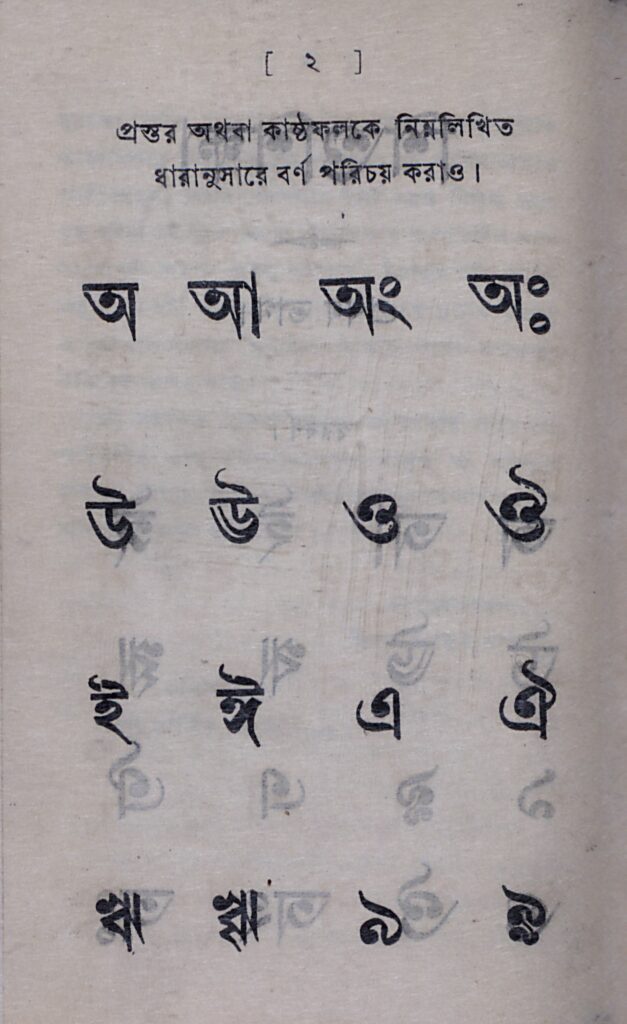 [ ২ ]
প্রস্তর অথবা কাষ্ঠফলকে নিম্নলিখিত
ধারানুসারে বর্ণ পরিচয় করাও।
অ আ অং অঃ
উ ঊ ও ঔ
ই ঈ এ ঐ
ঋ ৠ ঌ ৡ